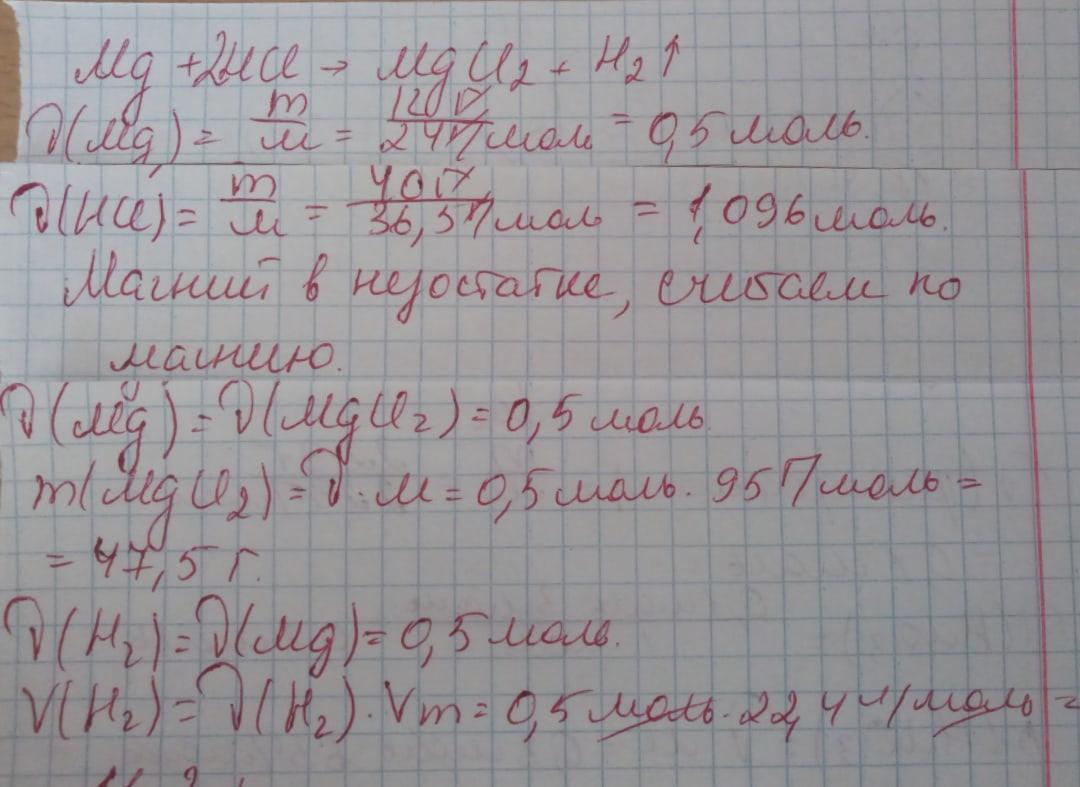 Mg + 2HCl → MgCl₂ + H₂↑
ν(Mg) = m/M = 12,0 г/24 г/моль = 0,5 моль.
ν(HCl) = m/M = 40 г/36,5 г/моль = 1,096 моль.
Магний в недостатке, считаем по
магнию.
ν(Mg) = ν(MgCl₂) = 0,5 моль
m(MgCl₂) = ν · M = 0,5 моль · 95 г/моль =
= 47,5 г.
ν(H₂) = ν(Mg) = 0,5 моль.
V(H₂) = ν(H₂) · Vm = 0,5 моль · 22,4 л/моль =